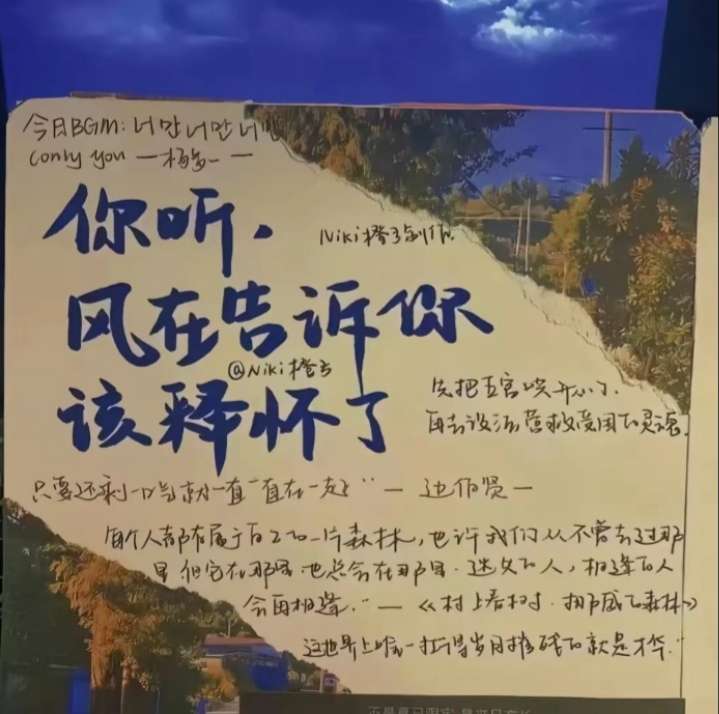 今日BGM: 너만너만너만
(only you — 杨多一 —
你听,
Niki橙子创作
风在告诉你
@Niki橙子
该释怀了
先把五官哄开心了,
再去设法营救受困的灵魂.
只要还剩一口气就一直一直在一起” — 边伯贤 —
每个人都有属于自己的一片森林,也许我们从不曾去过那
里 但它在那里.也总会在那里.迷失的人,相逢的人
会再相逢.” — 《村上春树. 挪威的森林》
这世界上唯一扛得岁月摧残的就是才华.”